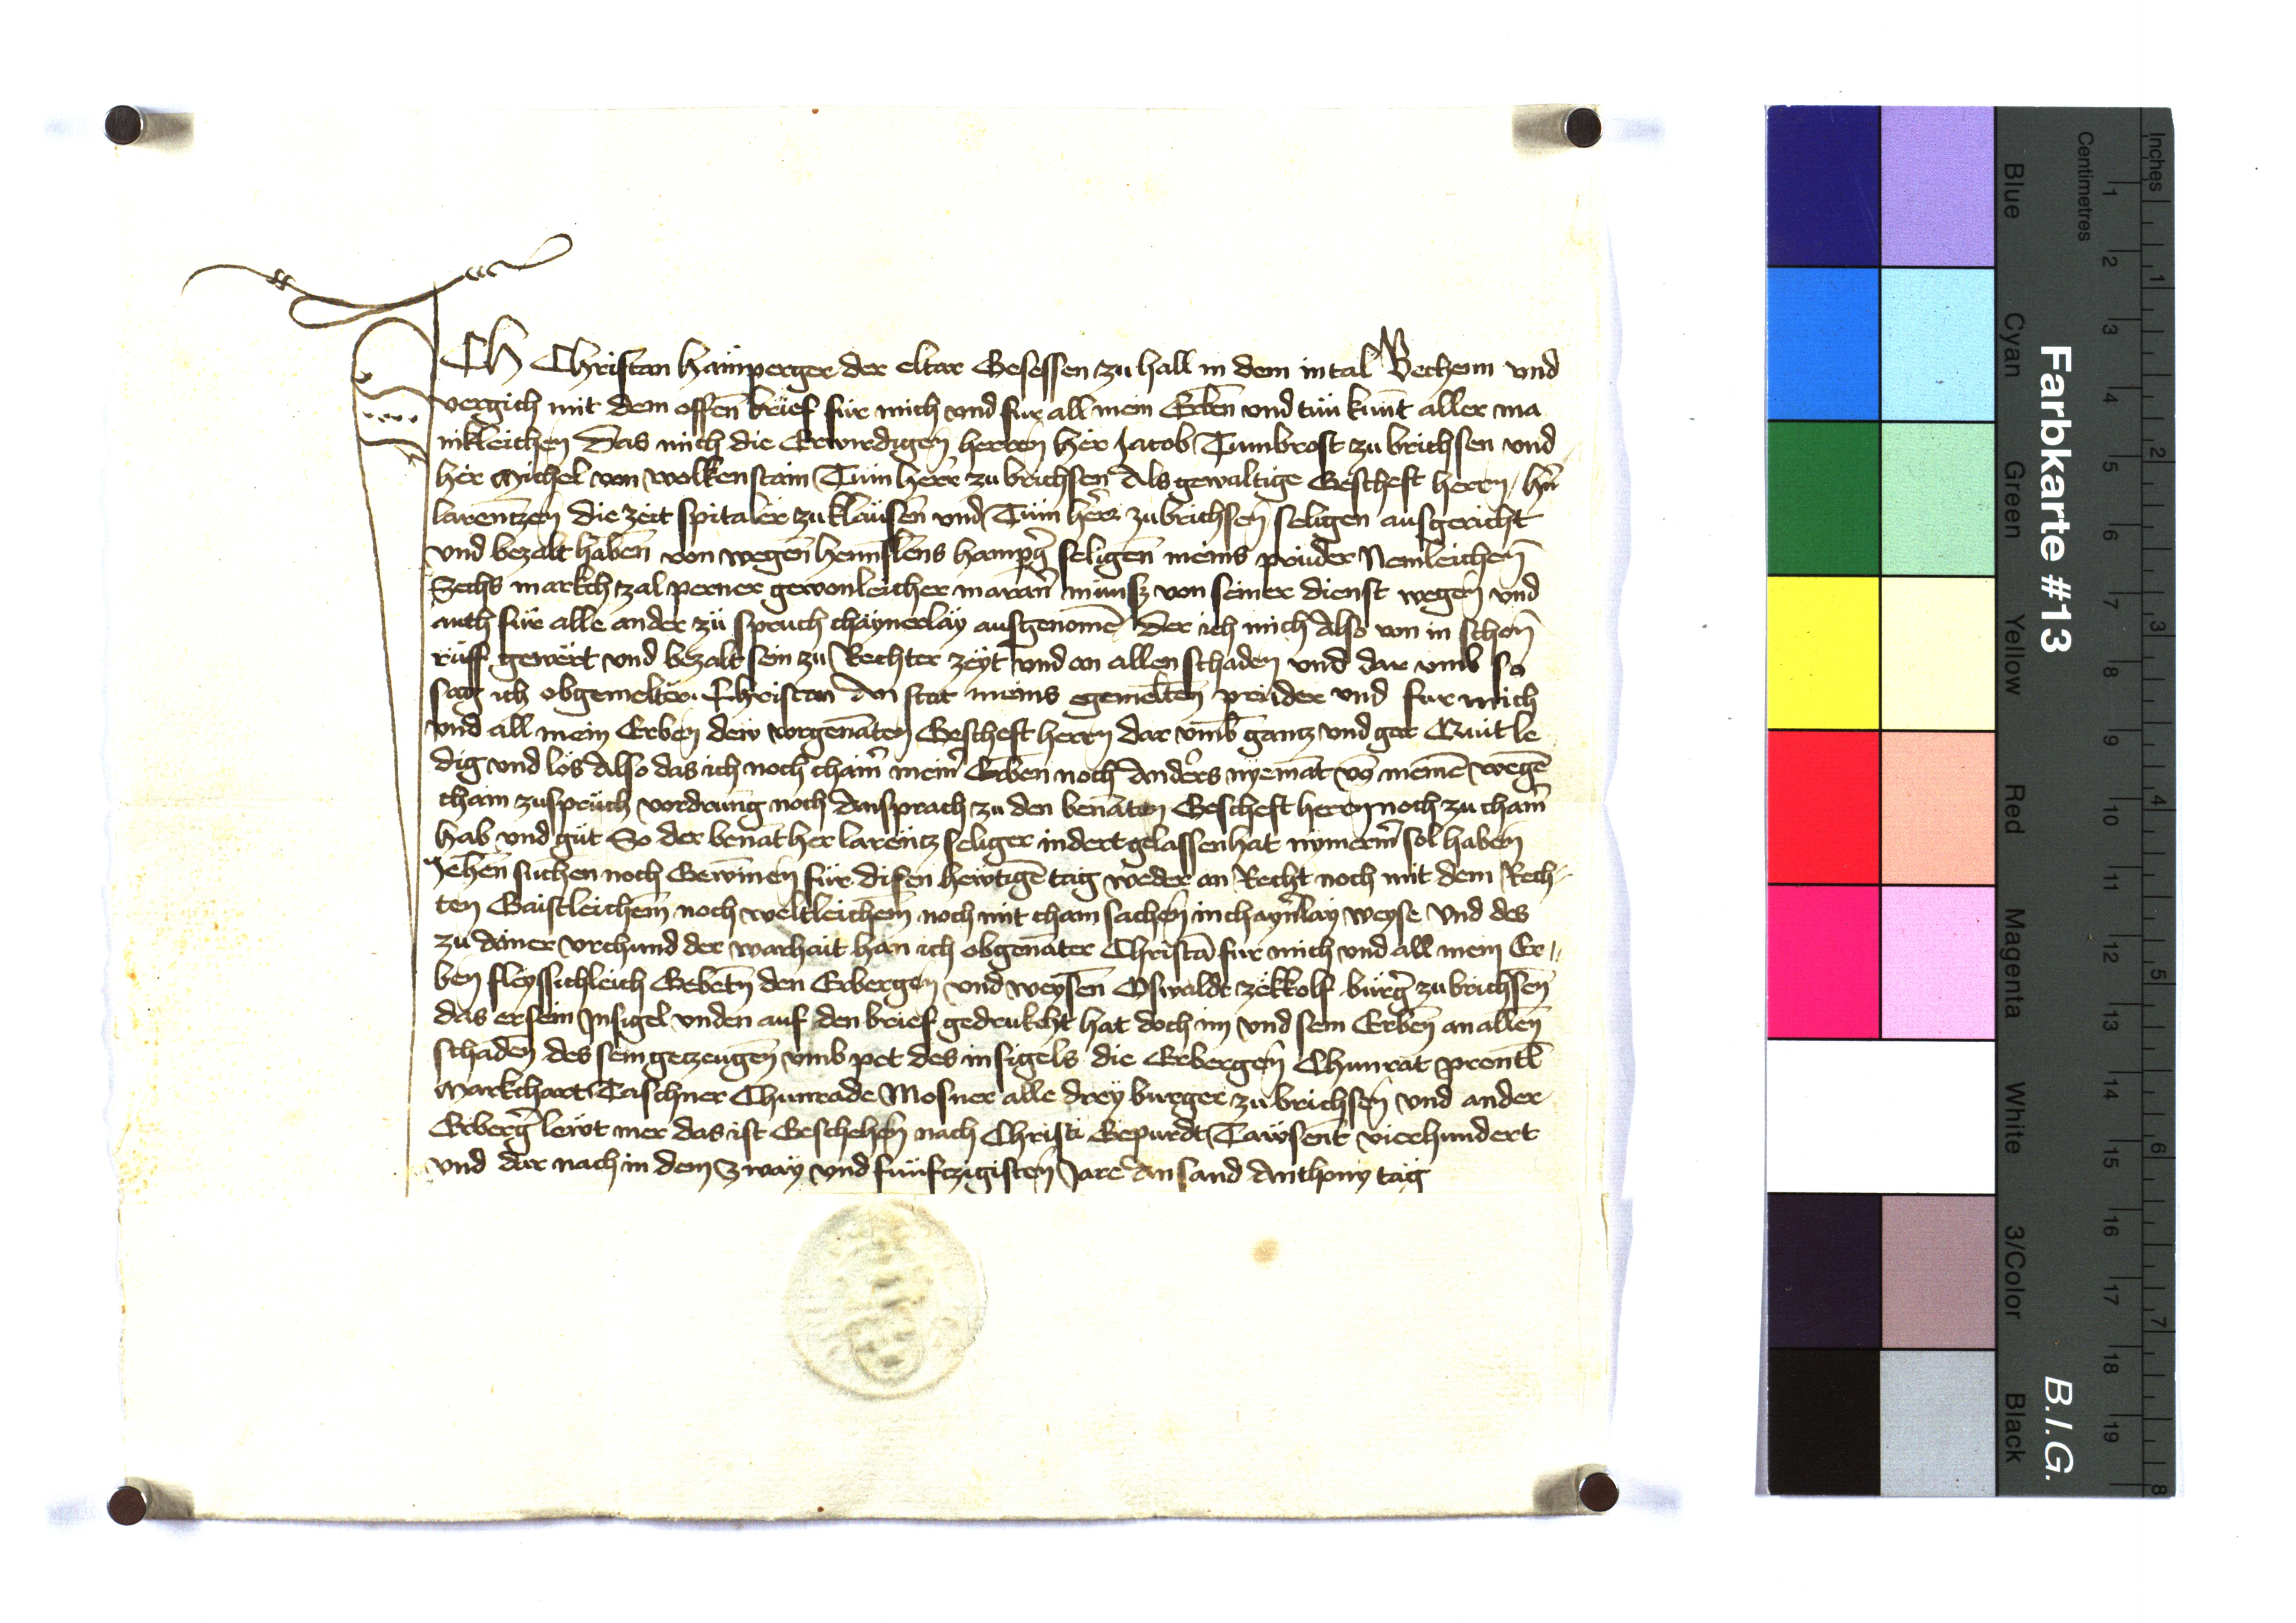 ICH Christan Hämperger der eltar Gesessen zu hall in dem intal Vechenn vnd
vergich mit dem offen̄ brief für mich vnd fur all mein Erben̄ vnd tün kunt aller ma
inkleichen̄ Das mich die Erwirdigen̄ herren̄ her Jacob Tumbrost zu brichsen vnd
her Michel von wolkenstain Tum herr zu brichsen Als gewaltige Gescheft herrn h̄n
larentzen̄ die zeit spitaler zu klausen̄ vnd Tüm herr zu brichsen̄ seligen ausgericht
vnd bezalt haben̄ von wegen̄ hennslens hamp̄ḡ seligen̄ meins prüder Nemleichen̄
Sechs markch zal perner gewonleicher maran̄ münsz von seiner dienst wegen̄ vnd
auch für alle ander zü spruch chäynerläy ausgenomē Der ich mich Also von in schon̄
rüff gewert vnd bezalt sein zu Rechter zeyt vnd an allen schaden vnd dar vmb so
sag ich obgemelter Christan An stat meins egemelten̄ prüder vnd fur mich
vnd all mein Erben̄ dew vorgenāten Gescheft herrn dar vmb gantz vnd gar Quit le
dig vnd los Also das ich noch chain̄ mein̄ Erben noch Anders nyemāt vō meinē wegē
chain zuspruch vordrung noch Ansprach zu den benāten Gescheft herrn noch zu chain̄
hab vnd güt So der benāt her larentz seliger indert gelassen hat nymerm̄ sol haben̄
Jehen̄ suchen noch Gewinen̄ für disen hewtigē tag weder an Recht noch mit dem Rech-
ten Gaistleichem̄ noch weltleichem̄ noch mit cham sachen̄ in chayn̄läy weyse Vnd des
zu ainer vrchund der warhait han ich obgenāter Christā fur mich vnd all mein Er-
ben̄ fleyssichleich Gebetn̄ den Erbergen̄ vnd weysen̄ Oswalde zekkolf bürḡ zu brichsen̄
das er sein Insigel vnden auf den brief gedrukcht hat doch im vnd sein Erben̄ an allen̄
schaden̄ des sein getzeugen̄ vmb pet des insigels die Erbergen̄ Chunrat prentl̄
Markchart Taschner Chunrade Mosner alle drey burger zu brichsen̄ vnd ander
Erberḡ lewt mer das ist Geschehen̄ nach Christi Gepurdt Tawsent vierhundert
vnd dar nach in dem Zway vnd funftzigisten̄ Jare An sand Anthony tag
Farbkarte #13
B.I.G.
Inches 1 2 3 4 5 6 7 8
Centimetres 1 2 3 4 5 6 7 8 9 10 11 12 13 14 15 16 17 18 19
Blue
Cyan
Green
Yellow
Red
Magenta
White
3/Color
Black